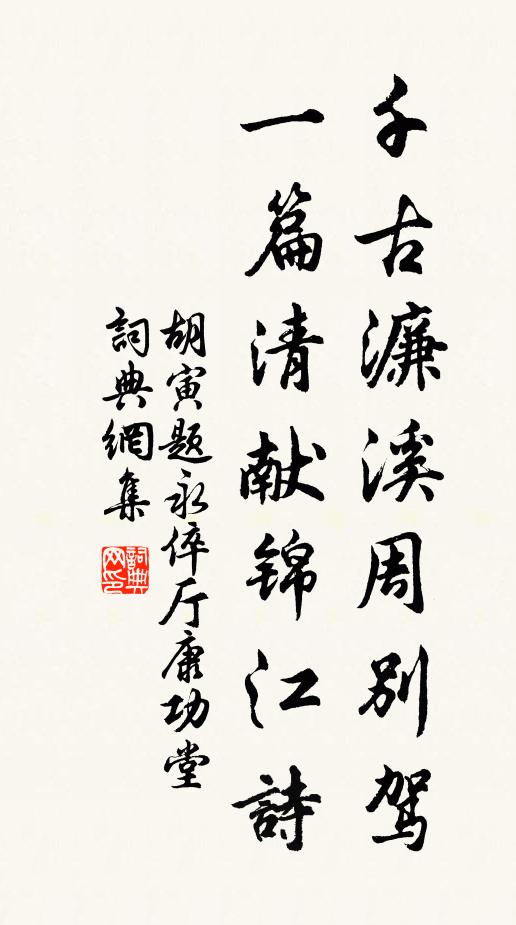 千古濂溪周別駕
一篇清献錦江詩
胡寅题永倅厅康功堂
詞典網集
詞典網印